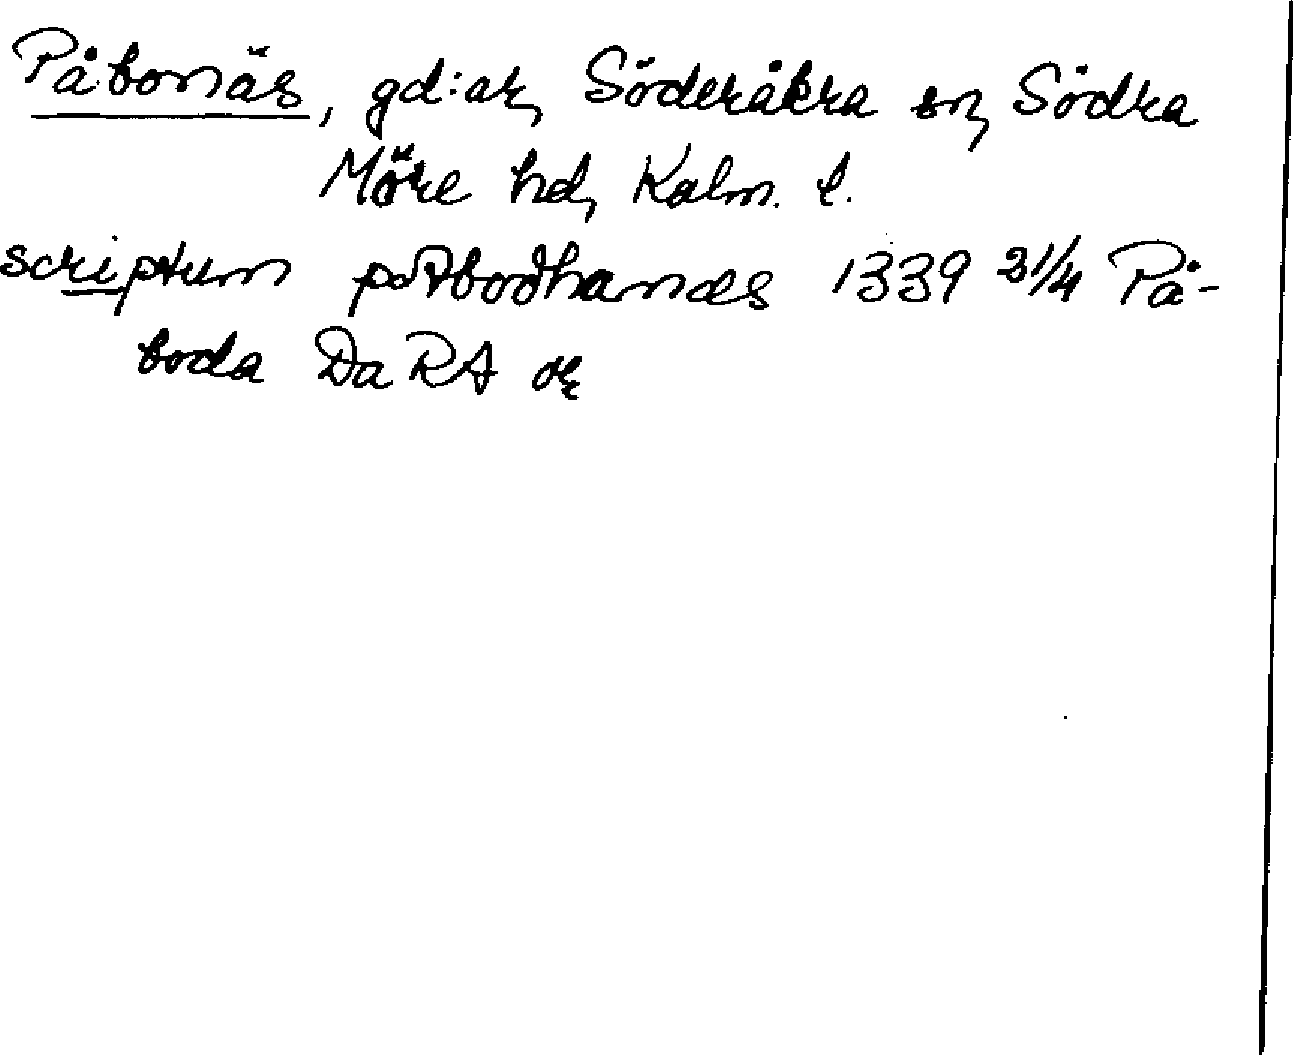 Påbonäs, gd:ar, Söderåkra sn, Södra
Möre hd, Kalm. l.
scriptum 1339 21/4 På-
boda Da RA or